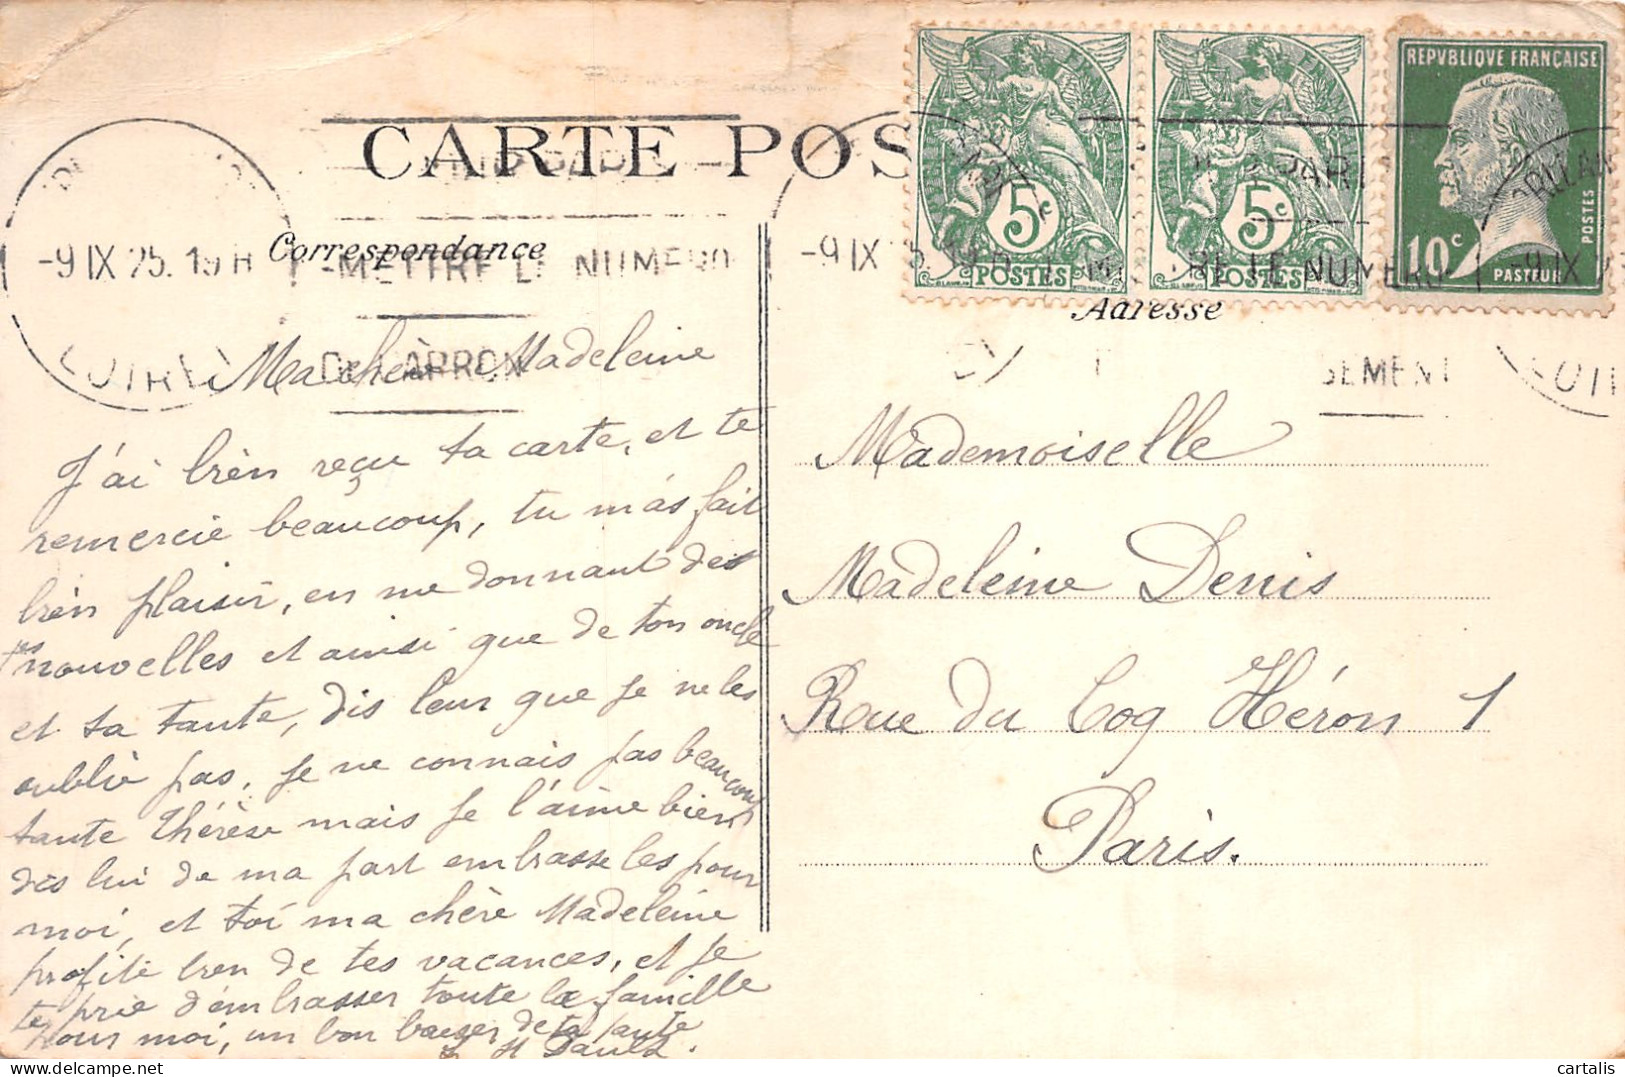 CARTE POS
REPVBLIQVE FRANÇAISE
5c
POSTES
5c
POSTES
10c
PASTEUR
POSTES
ORLEAN
-9 IX 25. 19 H
METTRE LE NUMERO
-9 IX 25. 19
RE LE NUMERO
-9 IX
Correspondance
Adresse
LOIRET
SEMENT
Ma chère Madeleine
J'ai bien reçu ta carte, et te
remercie beaucoup, tu m'as fait
bien plaisir, en me donnant des
nouvelles et ainsi que de ton oncle
et ta tante, dis leur que je ne les
oublie pas, je ne connais pas beaucoup
tante Thérèse mais je l'aime bien
dis lui de ma part embrasse les pour
moi, et toi ma chère Madeleine
profite bien de tes vacances, et je
te prie d'embrasser toute la famille
pour moi, un bon baiser de ta tante
Mademoiselle
Madeleine Denis
Rue du Coq Héron 1
Paris.
cartalis.com